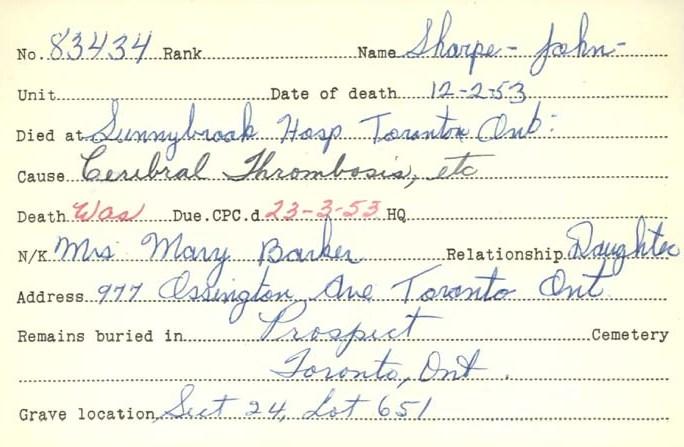 No. 83434 Rank Name Sharpe - John -
Unit Date of death 12-2-53
Died at Sunnybrook Hosp Toronto Ont.
Cause Cerebral Thrombosis, etc
Death Was Due.CPC.d 23-3-53 HQ
N/K Mrs Mary Barker Relationship Daughter
Address 977 Ossington Ave Toronto Ont
Remains buried in Prospect Cemetery
Toronto, Ont.
Grave location Sect 24, Lot 651